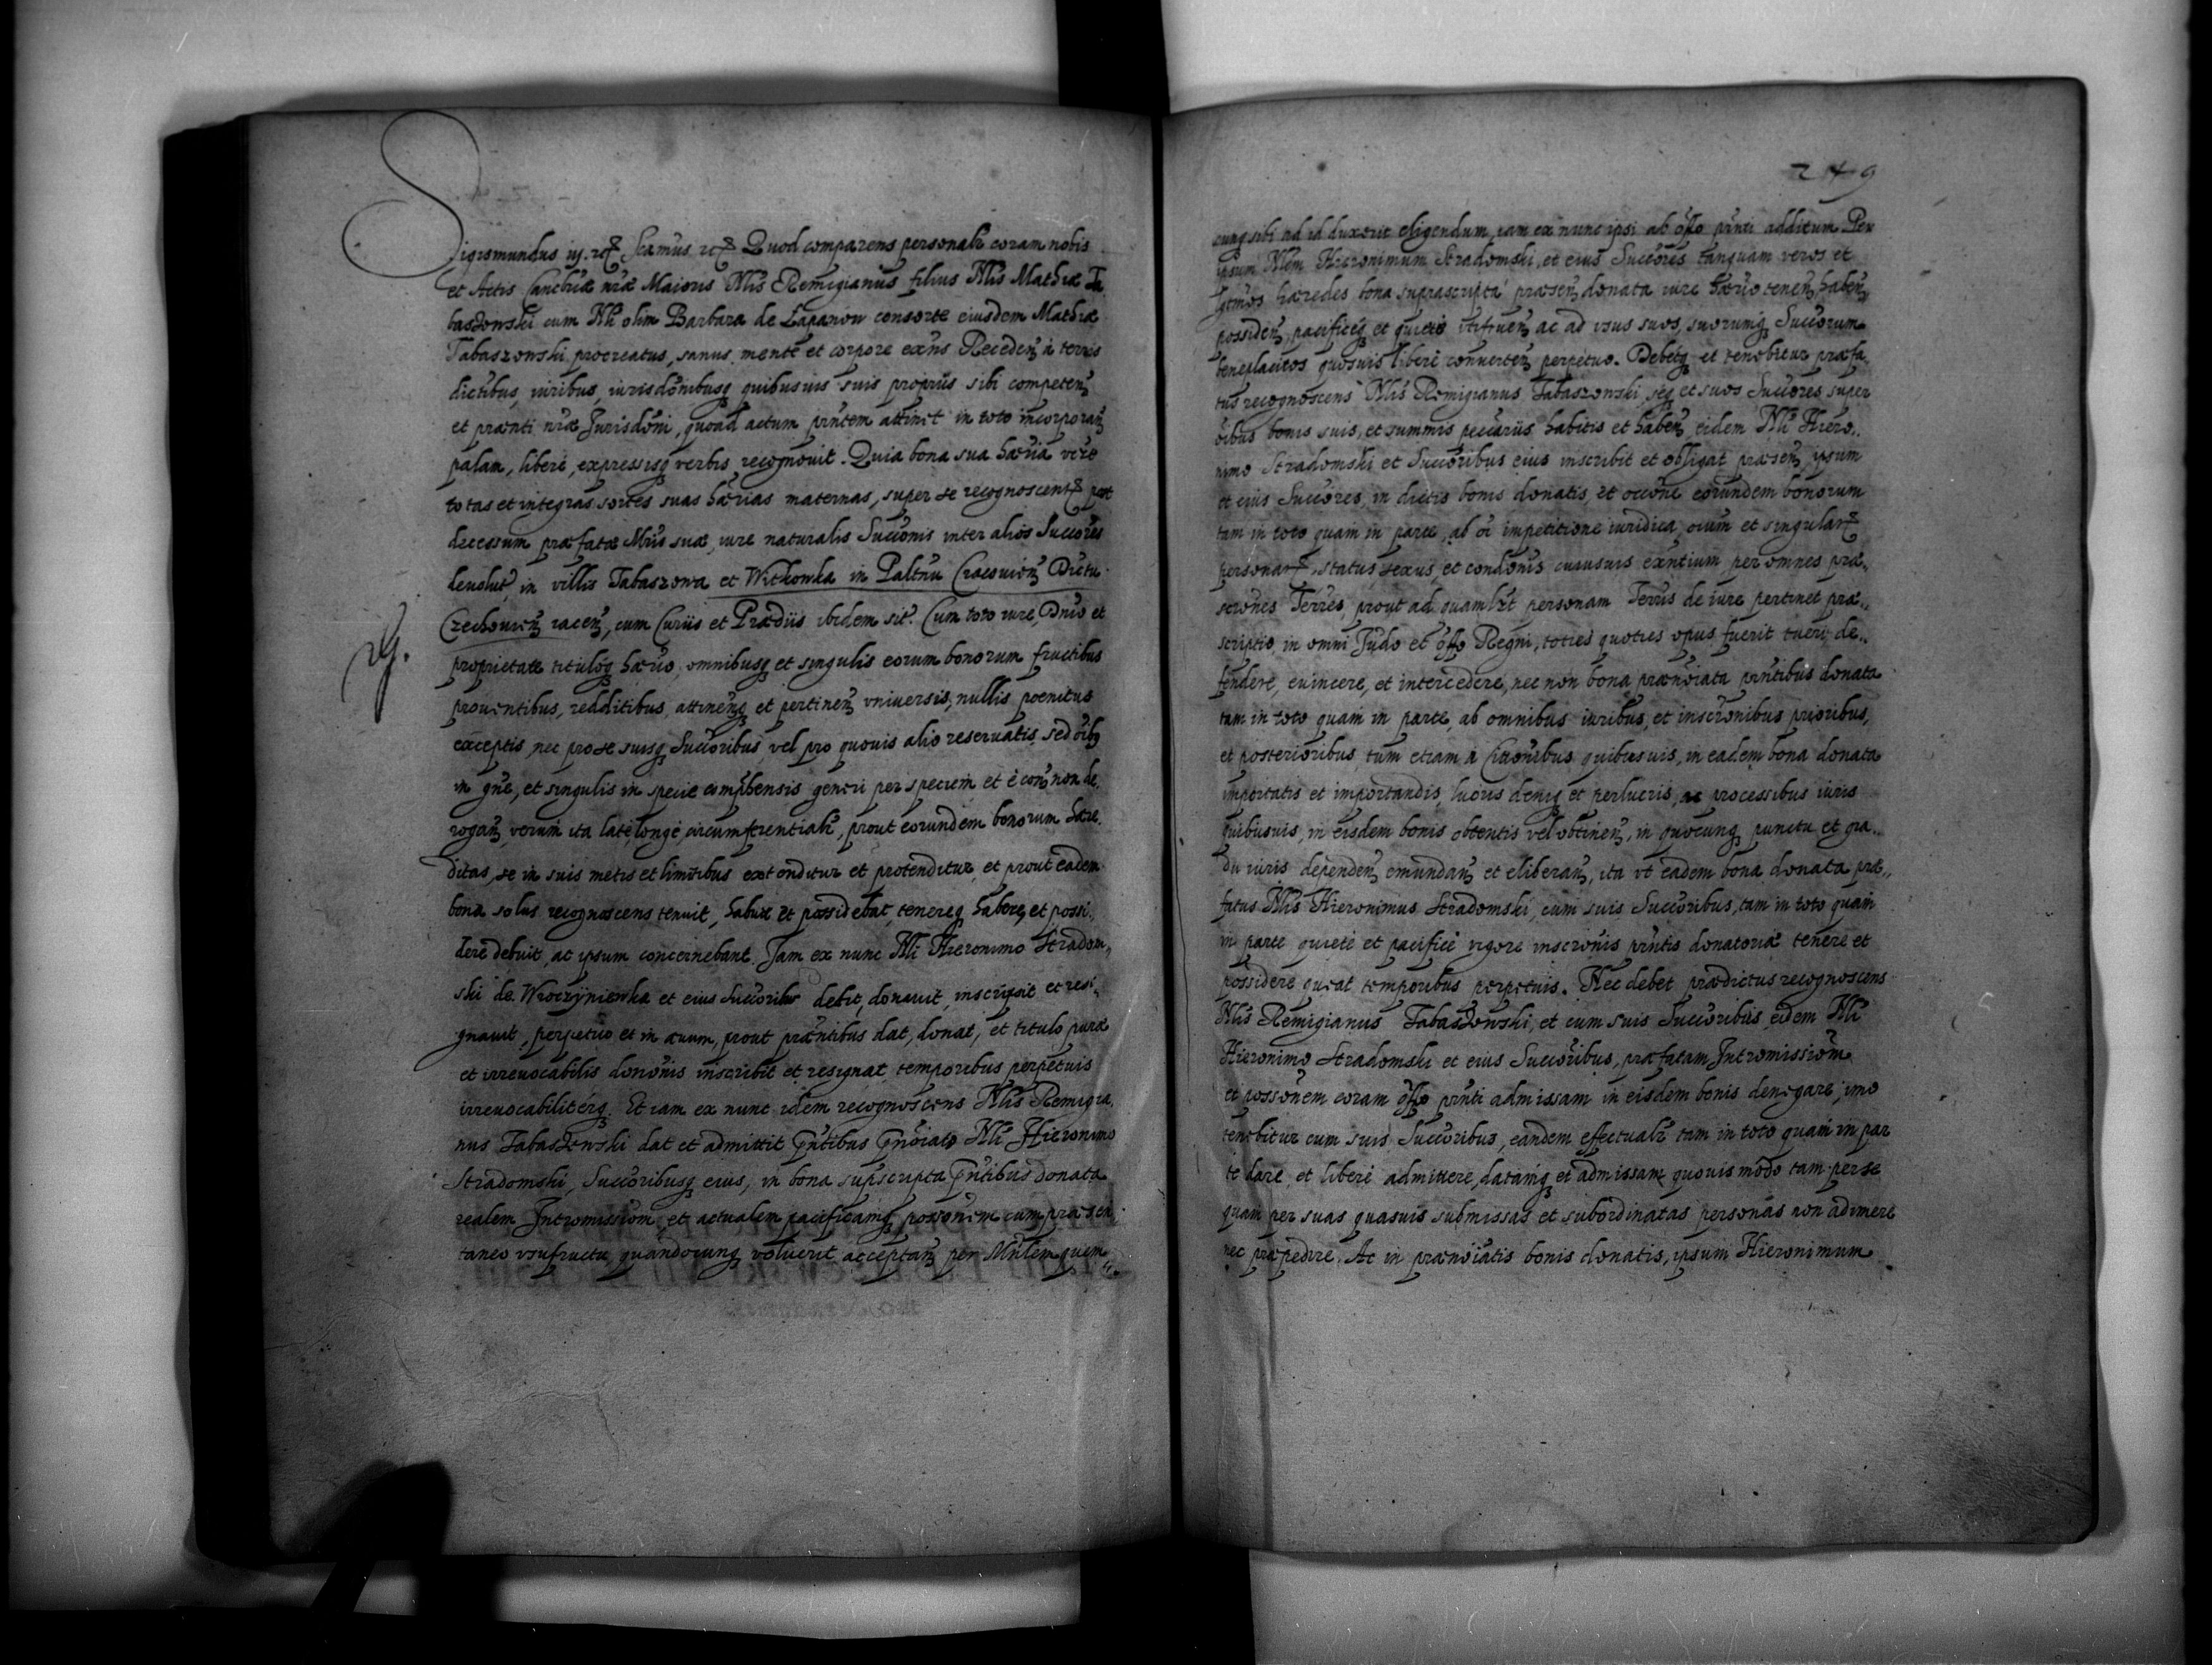 Sigismundus iij. rcɫ Scamus rcɫ Quod comparens personalr coram nobis
et Actis Cancłriæ nræ Maioris Nłis Remigianus filius Nłis Mathiæ Ta
baszowski cum Nłi olim Barbara de Łapanow consorte eiusdem Mathiæ
Tabaszowski procreatus, sanus mente et corpore exn̄s Receden̄ à terris
dictibus, iuribus, iurisdōnibusq quibusuis suis proprÿs sibi competen̄
et præn̄ti nræ Jurisdōni, quoad actum prn̄tem attinet in toto incorporan̄
palam, liberè, expressisq verbis recognouit. Quia bona sua hæria vire
totas et integras sortes suas hærias maternas, super se recognoscentɫ post
decessum præfatæ Mrīs suæ, iure naturalis Succōnis inter alios Succōres
deuolut, in villis Tabaszowa et Witkowka in Paltnu Cracouien̄ Dictu
Czechouien̄ iacen̄, cum Curÿs et Prædÿs ibidem sit. Cum toto iure, Dnīo et
proprietate tituloq hærio, omnibusq et singulis eorum bonorum fructibus
prouentibus, redditibus, attinen̄q et pertinen̄ vniuersis, nullis poenitus
exceptis, nec pro se suisq Succōribus, vel pro quouis alio reseruatis, sed oībq
in gn̄e, et singulis in specie compłhensis generi per speciem et è con̄ non de
rogan̄, verum ita latè, longè, circumferentialr, prout eorundem bonorum hære
ditas, se in suis metis et limitibus extenditur et protenditur, et prout eadem
bona solus recognoscens tenuit, habuit et possidebat, tenereq habere, et possi
dere debuit, ac ipsum concernebant. Jam ex nunc Nłi Hieronimo Stradom
ski de Wroczÿniewka et eius Succōribus dedit, donauit, inscripsit et resi
gnauit, perpetuo et in æuum, prout præn̄tibus dat, donat, et titulo puræ
et irreuocabilis donōnis inscribit et resignat, temporibus perpetuis
irreuocabiliterq. Et iam ex nunc idem recognoscens Nłis Remigia
nus Tabaszowski dat et admittit prn̄tibus prnōiato Nłi Hieronimo
Stradomski, Succōribusq eius, in bona supscripta prn̄tibus donata
realem Intromissiōm, et actualem pacificamq possōnem cum præsen
taneo vsufructu, quandocunq voluerit acceptan̄ per Mn̄lem quem
249
cunq sibi ad id duxerit eligendum, iam ex nunc ipsi ab offo prn̄ti additum Per
ipsum Nłem Hieronimum Stradomski, et eius Succōres tanquam veros et
lgtmos hæredes bona suprascripta præsen̄ donata iure hærio tenen̄, haben̄
possiden̄, pacificeq et quietè vtifruen̄ ac ad vsus suos, suorumq Succorum
beneplacitos quosuis liberè conuerten̄ perpetuo. Debetq et tenebitur præfa
tus recognoscens Nłis Remigianus Tabaszowski, seq et suos Succōres super
oībus bonis suis, et summis peccarÿs habitis et haben̄ eidem Nłi Hiero
nimo Stradomski et Succōribus eius inscribit et obligat præsen̄ ipsum
et eius Succōres, in dictis bonis donatis, et occōne eorundem bonorum
tam in toto quam in parte, ab oī impetitione iuridica, oīum et singularɫ
personarɫ, status, sexus, et condōnis cuiusuis exn̄tium per omnes præ
scrōnes Terres, prout ad quamlibt personam Terris de iure pertinet præ
scriptio, in omni Judo et offo Regni, toties quoties opus fuerit tueri, de
fendere, euincere, et intercedere, nec non bona prænōiata prn̄tibus donata
tam in toto quam in parte, ab omnibus iuribus, et inscrōnibus prioribus,
et posterioribus, tum etiam à Citaōnibus quibusuis, in eadem bona donata
importatis et importandis, lucris deniq et perlucris, ac processibus iuris
quibusuis, in eisdem bonis obtentis vel obtinen̄, in quocunq punctu et gra
du iuris dependen̄ emundan̄ et eliberan̄, ita vt eadem bona donata præ
fatus Nłis Hieronimus Stradomski, cum suis Succōribus, tam in toto quam
in parte quietè et pacificè vigore inscrōnis prn̄tis donatoriæ tenere et
possidere queat temporibus perpetuis. Nec debet prædictus recognoscens
Nłis Remigianus Tabaszowski, et cum suis Succōribus, eidem Nłi
Hieronimo Stradomski et eius Succōribus, præfatam Intromissiōm
et possōnem coram offo prn̄ti admissam in eisdem bonis denegare, imo
tenebitur cum suis Succōribus, eandem effectualr tam in toto quam in par
te dare, et liberè admittere, datamq et admissam quouis modo tam per se
quam per suas quasuis submissas et subordinatas personas non adimere
nec præpedire. Ac in prænōiatis bonis donatis, ipsum Hieronimum